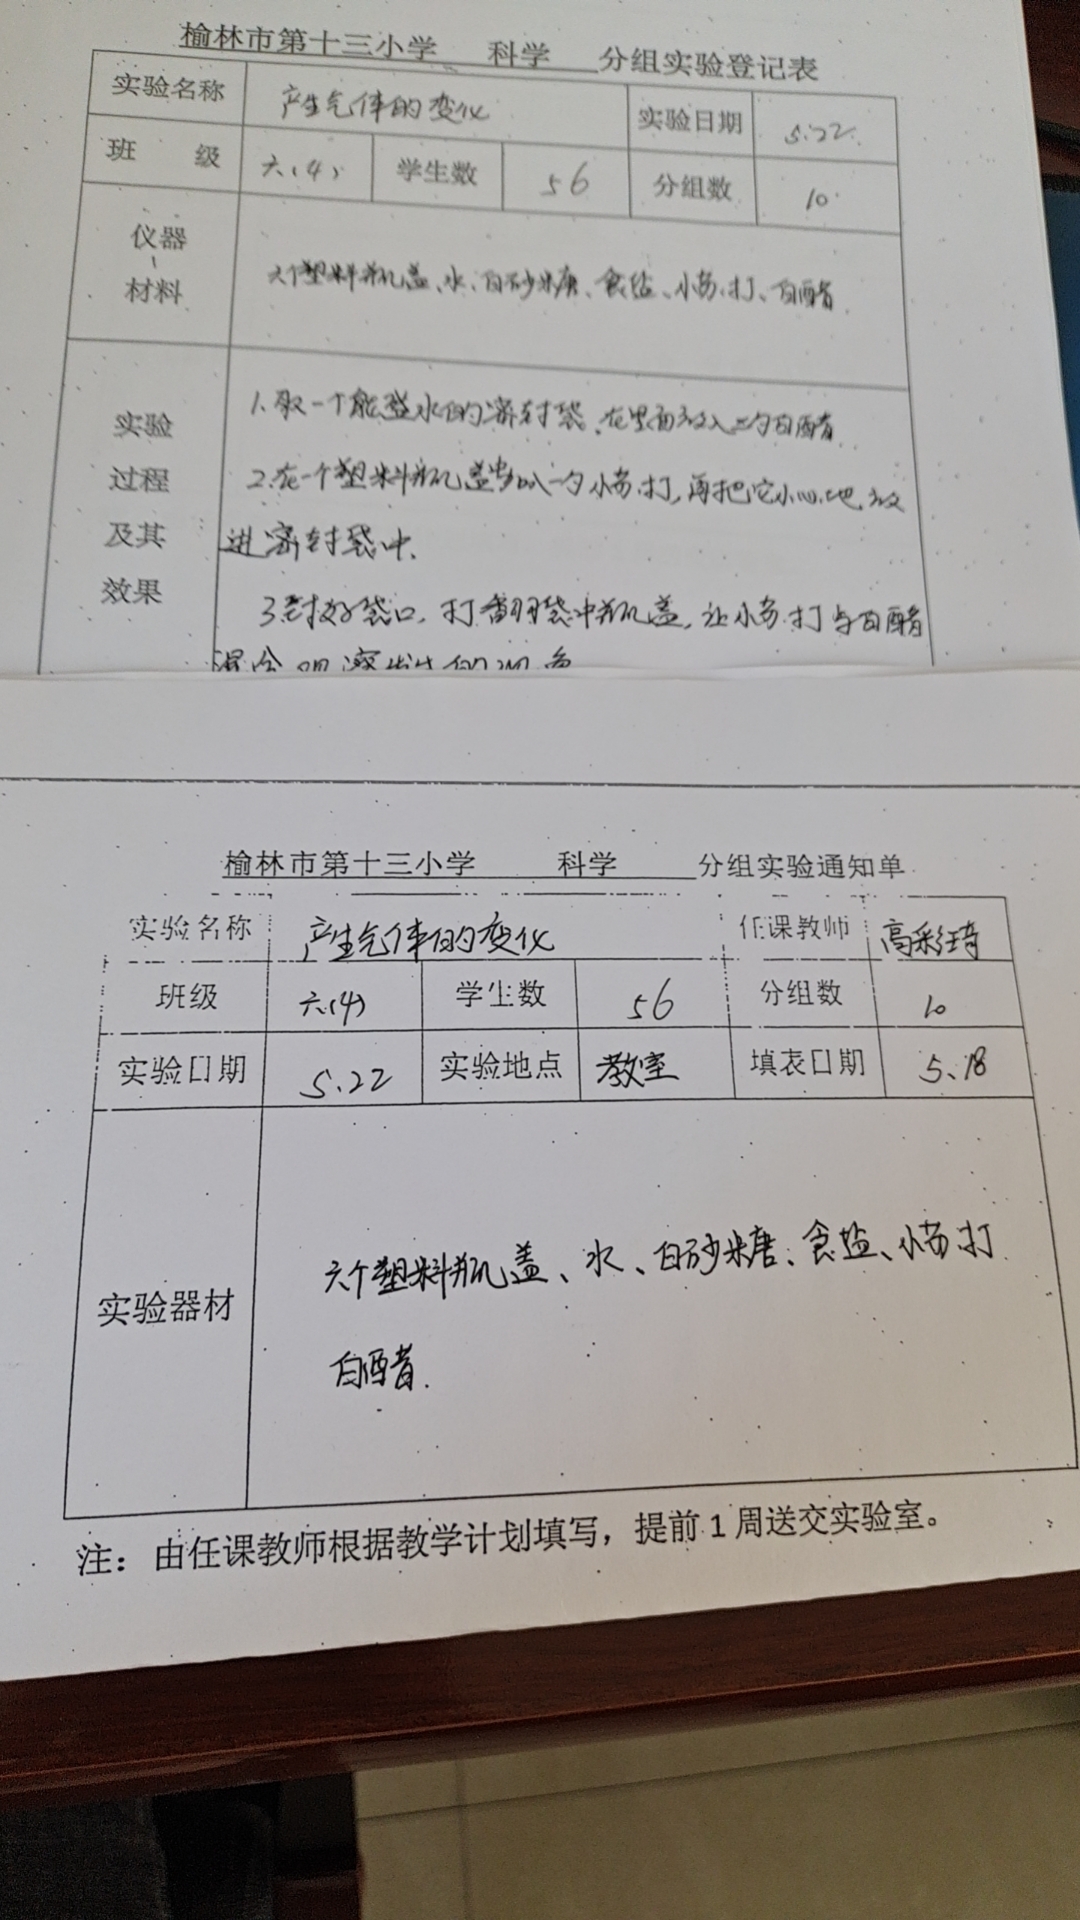 榆林市第十三小学 科学 分组实验登记表
实验名称 产生气体的变化 实验日期 5.22.
班 级 六(4) 学生数 56 分组数 10
仪器
材料
六个塑料瓶盖、水、白砂糖、食盐、小苏打、白醋
实验
过程
及其
效果
1.取一个能盛水的密封袋、在里面放入二勺白醋
2.在一个塑料瓶盖中放入一勺小苏打,再把它小心地放
进密封袋中.
3.封好袋口,打翻袋中瓶盖,让小苏打与白醋
混合
榆林市第十三小学 科学 分组实验通知单
实验名称 产生气体的变化 任课教师 高彩琦
班级 六(4) 学生数 56 分组数 10
实验日期 5.22 实验地点 教室 填表日期 5.18
实验器材
六个塑料瓶盖、水、白砂糖、食盐、小苏打
白醋.
注：由任课教师根据教学计划填写，提前1周送交实验室。